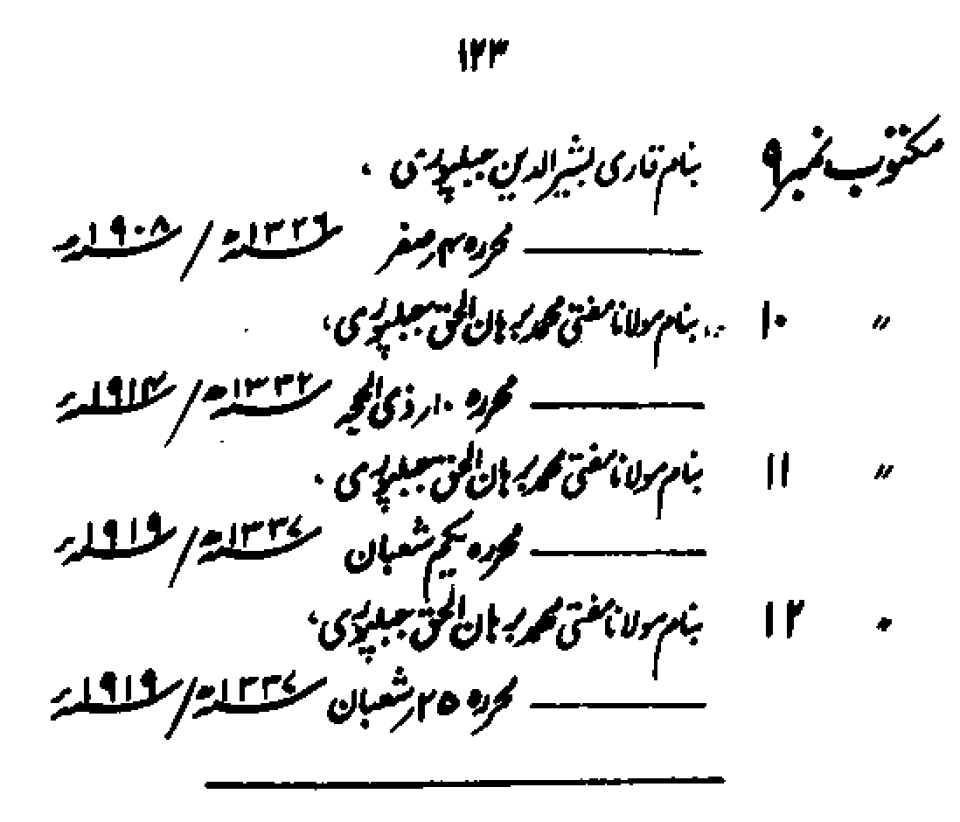 ۱۲۳
مکتوب نمبر ۹ بنام قاری بشیر الدین جبلپوری ،
——— محررہ ۴ر صفر ۱۳۲۶ھ / ۱۹۰۸ء
〃 ۱۰ بنام مولانا مفتی محمد برہان الحق جبلپوری ،
——— محررہ ۱۰ر ذی الحجہ ۱۳۳۲ھ / ۱۹۱۴ء
〃 ۱۱ بنام مولانا مفتی محمد برہان الحق جبلپوری ،
——— محررہ یکم شعبان ۱۳۳۷ھ / ۱۹۱۹ء
〃 ۱۲ بنام مولانا مفتی محمد برہان الحق جبلپوری ،
——— محررہ ۲۵ر شعبان ۱۳۳۷ھ / ۱۹۱۹ء